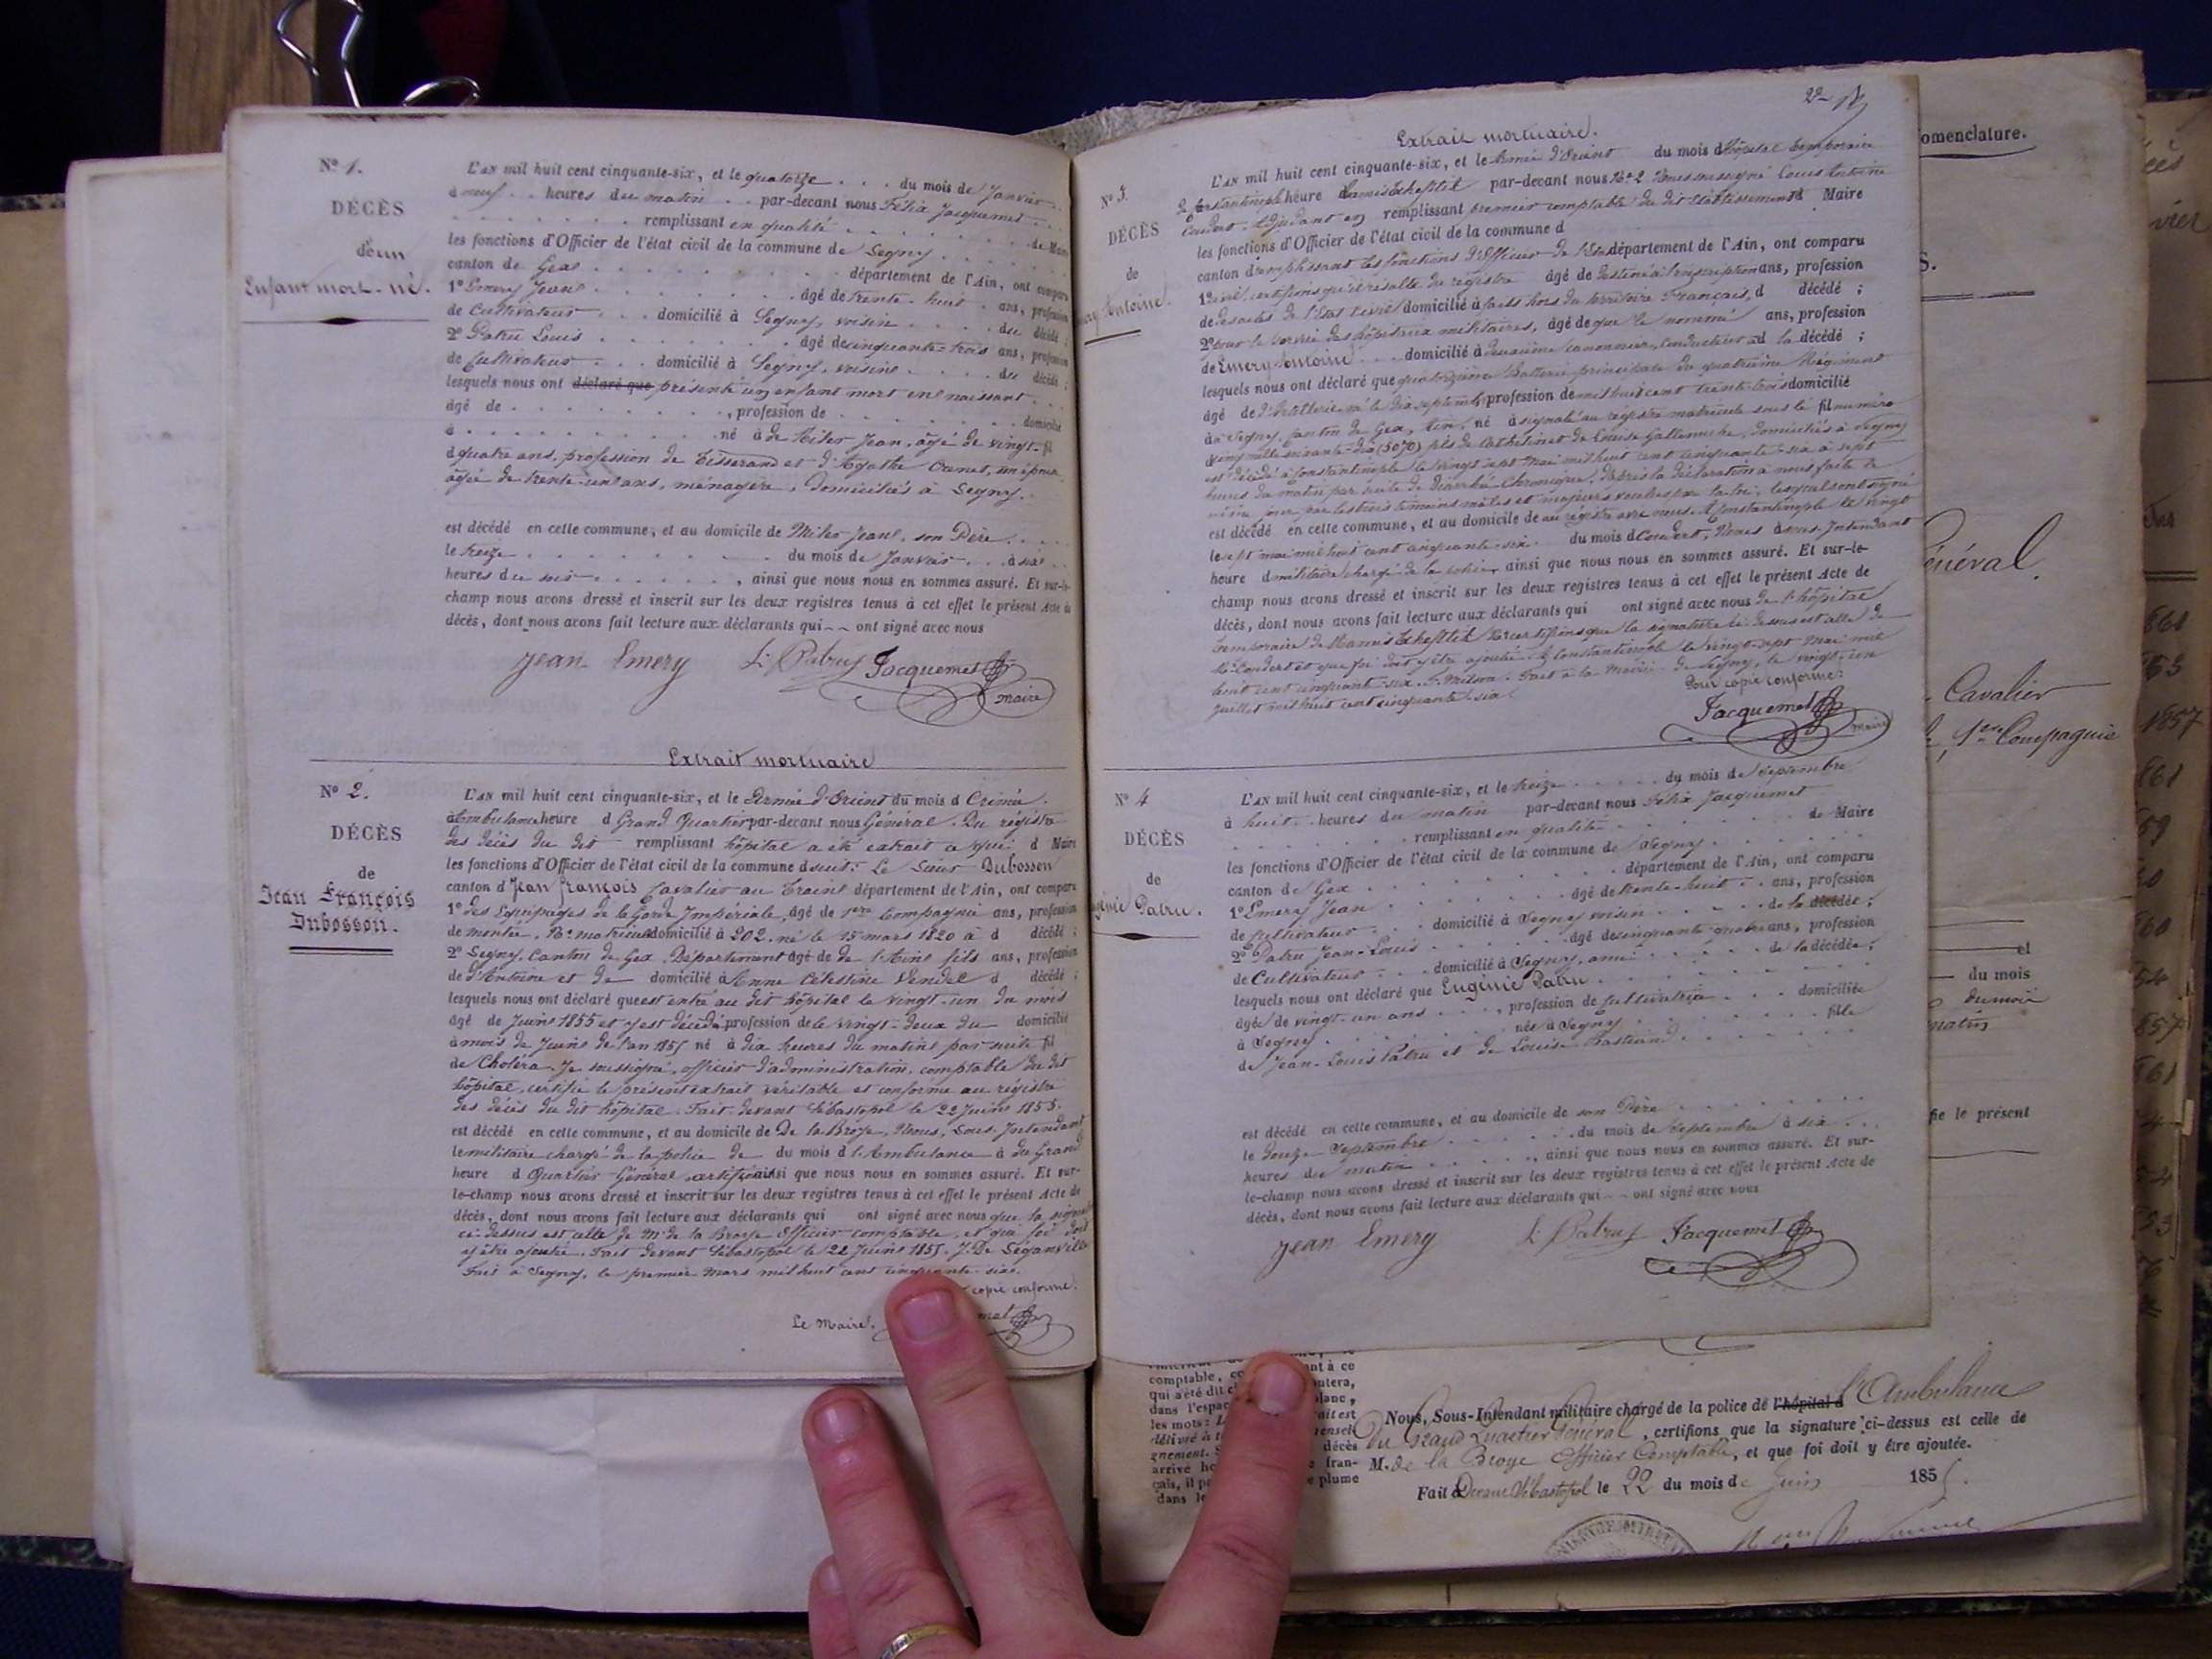 N° 1.
DÉCÈS
d'un
Enfant mort-né.
L'AN mil huit cent cinquante-six, et le quatorze . . . du mois de Janvier . .
à neuf . . heures du matin . . par-devant nous Félix Jacquemet . . .
remplissant en qualité . . . de Maire
les fonctions d'Officier de l'état civil de la commune de Segny . . .
canton de Gex . . . département de l'Ain, ont comparu
1° Emery Jean . . . âgé de trente-huit . ans, profession
de Cultivateur . . . domicilié à Segny, voisin . . . du décédé ;
2° Patru Louis . . . âgé de cinquante-trois ans, profession
de Cultivateur . . . domicilié à Segny, voisin . . . du décédé ;
lesquels nous ont déclaré que présenté un enfant mort en naissant . .
âgé de . . . , profession de . . . domicilié
à . . . né à de Miler Jean, âgé de vingt- fil
d quatre ans, profession de Tisserand et d'Agathe son épouse
âgée de trente-un ans, ménagère, domiciliés à Segny.
est décédé en cette commune, et au domicile de Miler Jean, son Père . . .
le treize . . . du mois de Janvier . . . à six . .
heures du soir . . . , ainsi que nous nous en sommes assuré. Et sur-le-
champ nous avons dressé et inscrit sur les deux registres tenus à cet effet le présent Acte de
décès, dont nous avons fait lecture aux déclarants qui ~ ~ ont signé avec nous
Jean Emery L. Patru Jacquemet
maire
Extrait mortuaire
N° 2.
DÉCÈS
de
Jean François
Dubosson.
L'AN mil huit cent cinquante-six, et le Armée d'Orient du mois d Crimée.
à Ambulance heure d Grand Quartier par-devant nous Général. Du régistre
des décès du dit remplissant hôpital a été extrait ce qui d Maire
les fonctions d'Officier de l'état civil de la commune d suit: Le Sieur Dubosson
canton d Jean François Cavalier au Train département de l'Ain, ont comparu
1° des Equipages de la Garde Impériale, âgé de 1ère Compagnie ans, profession
de montée. N° matricule domicilié à 202. né le 15 mars 1820 à d décédé ;
2° Segny, Canton de Gex, Département âgé de de l'Ain fils ans, profession
de d'Antoine et de domicilié à Anne Célestine Vendel d décédé ;
lesquels nous ont déclaré que est entré au dit hôpital le vingt-un du mois
âgé de Juin 1855 et y est décédé profession de le vingt-deux du domicilié
à mois de Juin de l'an 1855 né à dix heures du matin par suite fil
de Choléra. Je soussigné, officier d'administration, comptable du dit
hôpital, certifie le présent extrait véritable et conforme au régistre
des décès du dit hôpital. Fait devant Sébastopol le 22 Juin 1855.
est décédé en cette commune, et au domicile de De la Broye, Nous, Sous-Intendant
le militaire chargé de la police de du mois d l'Ambulance à du Grand
heure d Quartier Général certifions ainsi que nous nous en sommes assuré. Et sur-
le-champ nous avons dressé et inscrit sur les deux registres tenus à cet effet le présent Acte de
décès, dont nous avons fait lecture aux déclarants qui ont signé avec nous que la signature
ci-dessus est celle de Mr de la Broye Officier comptable, et que foi doit
y être ajoutée. Fait devant Sébastopol le 22 Juin 1855. J. De Séganville
Fait à Segny, le premier Mars mil huit cent cinquante-six.
copie conforme.
Le Maire.
Extrait mortuaire.
N° 3.
DÉCÈS
de
Antoine.
L'AN mil huit cent cinquante-six, et le Armée d'Orient du mois d Hôpital temporaire
de Constantinople heure par-devant nous N° 2 Nous soussigné Louis Antoine
Coudert, Adjudant en remplissant premier comptable du dit établissement d Maire
les fonctions d'Officier de l'état civil de la commune d
canton d remplissant les fonctions d'Officier de l'Etat département de l'Ain, ont comparu
1° civil, certifions qu'il résulte du régistre âgé de destiné à l'inscription ans, profession
de des actes de l'Etat civil domicilié à faits hors du territoire Français, d décédé ;
2° pour le service des hôpitaux militaires, âgé de que le nommé ans, profession
de Emery Antoine . . . domicilié à deuxième canonnier, conducteur à d la décédé ;
lesquels nous ont déclaré que quatorzième Batterie principale du quatrième Régiment
âgé de d'Artillerie né le dix septembre profession de mil huit cent trente-trois domicilié
à à Segny, Canton de Gex, Ain, né à signalé au régistre matricule sous le fil numéro
cinq mille soixante-dix (5070) fils de et de Louise domiciliés à Segny
est décédé à Constantinople le vingt sept Mai mil huit cent cinquante-six à sept
heures du matin par suite de Diarrhée Chronique. D'après la déclaration à nous faite le
même jour par les trois témoins mâles et majeurs voulus par la loi, lesquels ont signé
est décédé en cette commune, et au domicile de au régistre avec nous. A Constantinople le vingt
le sept mai mil huit cent cinquante-six. du mois d Coudert, Nous à sous-Intendant
heure d militaire chargé de la police, ainsi que nous nous en sommes assuré. Et sur-le-
champ nous avons dressé et inscrit sur les deux registres tenus à cet effet le présent Acte de
décès, dont nous avons fait lecture aux déclarants qui ont signé avec nous de l'hôpital
temporaire de certifions que la signature ci-dessus est celle de
Mr Coudert et que foi doit y être ajoutée. A Constantinople le vingt-sept Mai mil
huit cent cinquante-six. Fait à la Mairie de Segny, le vingt-un
Juillet mil huit cent cinquante-six.
Pour copie conforme:
Jacquemet
maire
N° 4
DÉCÈS
de
Patru.
L'AN mil huit cent cinquante-six, et le treize . . . du mois de Septembre
à huit . heures du matin par-devant nous Félix Jacquemet
remplissant en qualité . . . de Maire
les fonctions d'Officier de l'état civil de la commune de Segny . . .
canton de Gex . . . département de l'Ain, ont comparu
1° Emery Jean . . . âgé de trente-huit . . ans, profession
de Cultivateur . . . domicilié à Segny voisin . . . de la décédée ;
2° Patru Jean-Louis . . . âgé de cinquante-quatre ans, profession
de Cultivateur . . . domicilié à Segny, ami . . . de la décédée ;
lesquels nous ont déclaré que Eugénie Patru . . .
âgée de vingt-un ans . . . , profession de Cultivatrice . . . domiciliée
à Segny . . . née à Segny . . . fille
de Jean-Louis Patru et de Louise Bastian . . .
est décédé en cette commune, et au domicile de son Père . . .
le douze Septembre . . . du mois de Septembre à six . . .
heures du matin . . . , ainsi que nous nous en sommes assuré. Et sur-
le-champ nous avons dressé et inscrit sur les deux registres tenus à cet effet le présent Acte de
décès, dont nous avons fait lecture aux déclarants qui ~ ~ ont signé avec nous
Jean Emery L. Patru Jacquemet
omenclature.
S.
énéral.
Cavalier
1ère Compagnie
et
du mois
du mois
matin
fie le présent
1857
comptable,
qui a été dit
dans l'espa
les mots :
dans le
Nous, Sous-Intendant militaire chargé de la police de l'hôpital d l'Ambulance
du Grand Quartier Général, certifions que la signature ci-dessus est celle de
M. de la Broye Officier Comptable, et que foi doit y être ajoutée.
Fait à Devant Sébastopol le 22 du mois de Juin 1855.